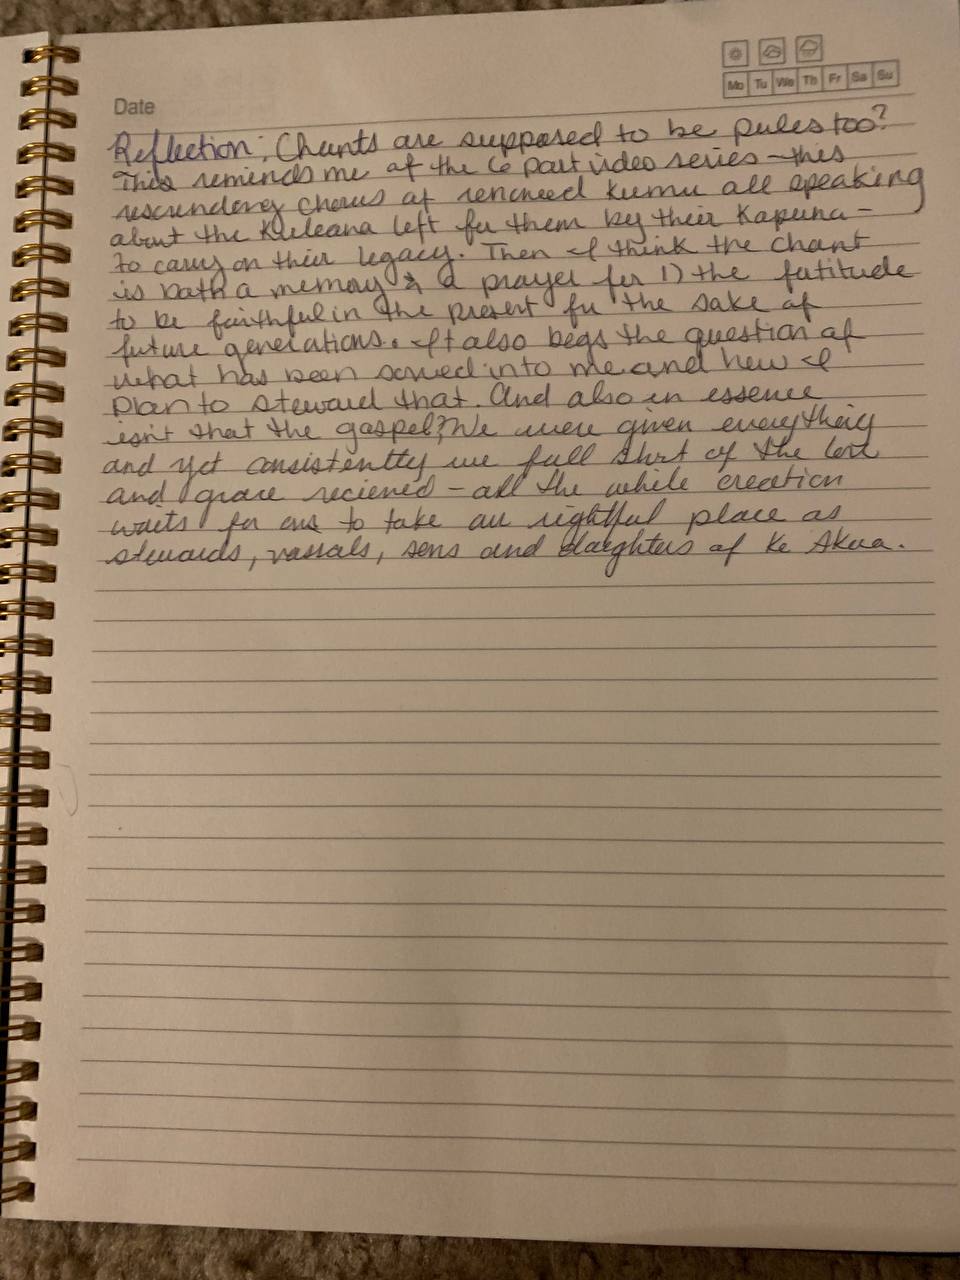 Mo Tu We Th Fr Sa Su
Date
Reflection: Chants are supposed to be pules too?
This reminds me of the 6 part video series - this
chorus of renowned kumu all speaking
about the Kuleana left for them by their Kapuna -
to carry on their legacy. Then I think the chant
is both a memory & a prayer for 1) the fatitude
to be faithful in the present for the sake of
future generations. It also begs the question of
what has been sowed into me and how I
plan to steward that. And also in essence
isn't that the gospel? We were given everything
and yet consistently we fall short of the love
and grace recieved - all the while creation
waits for us to take our rightful place as
stewards, vassals, sons and daughters of Ke Akua.